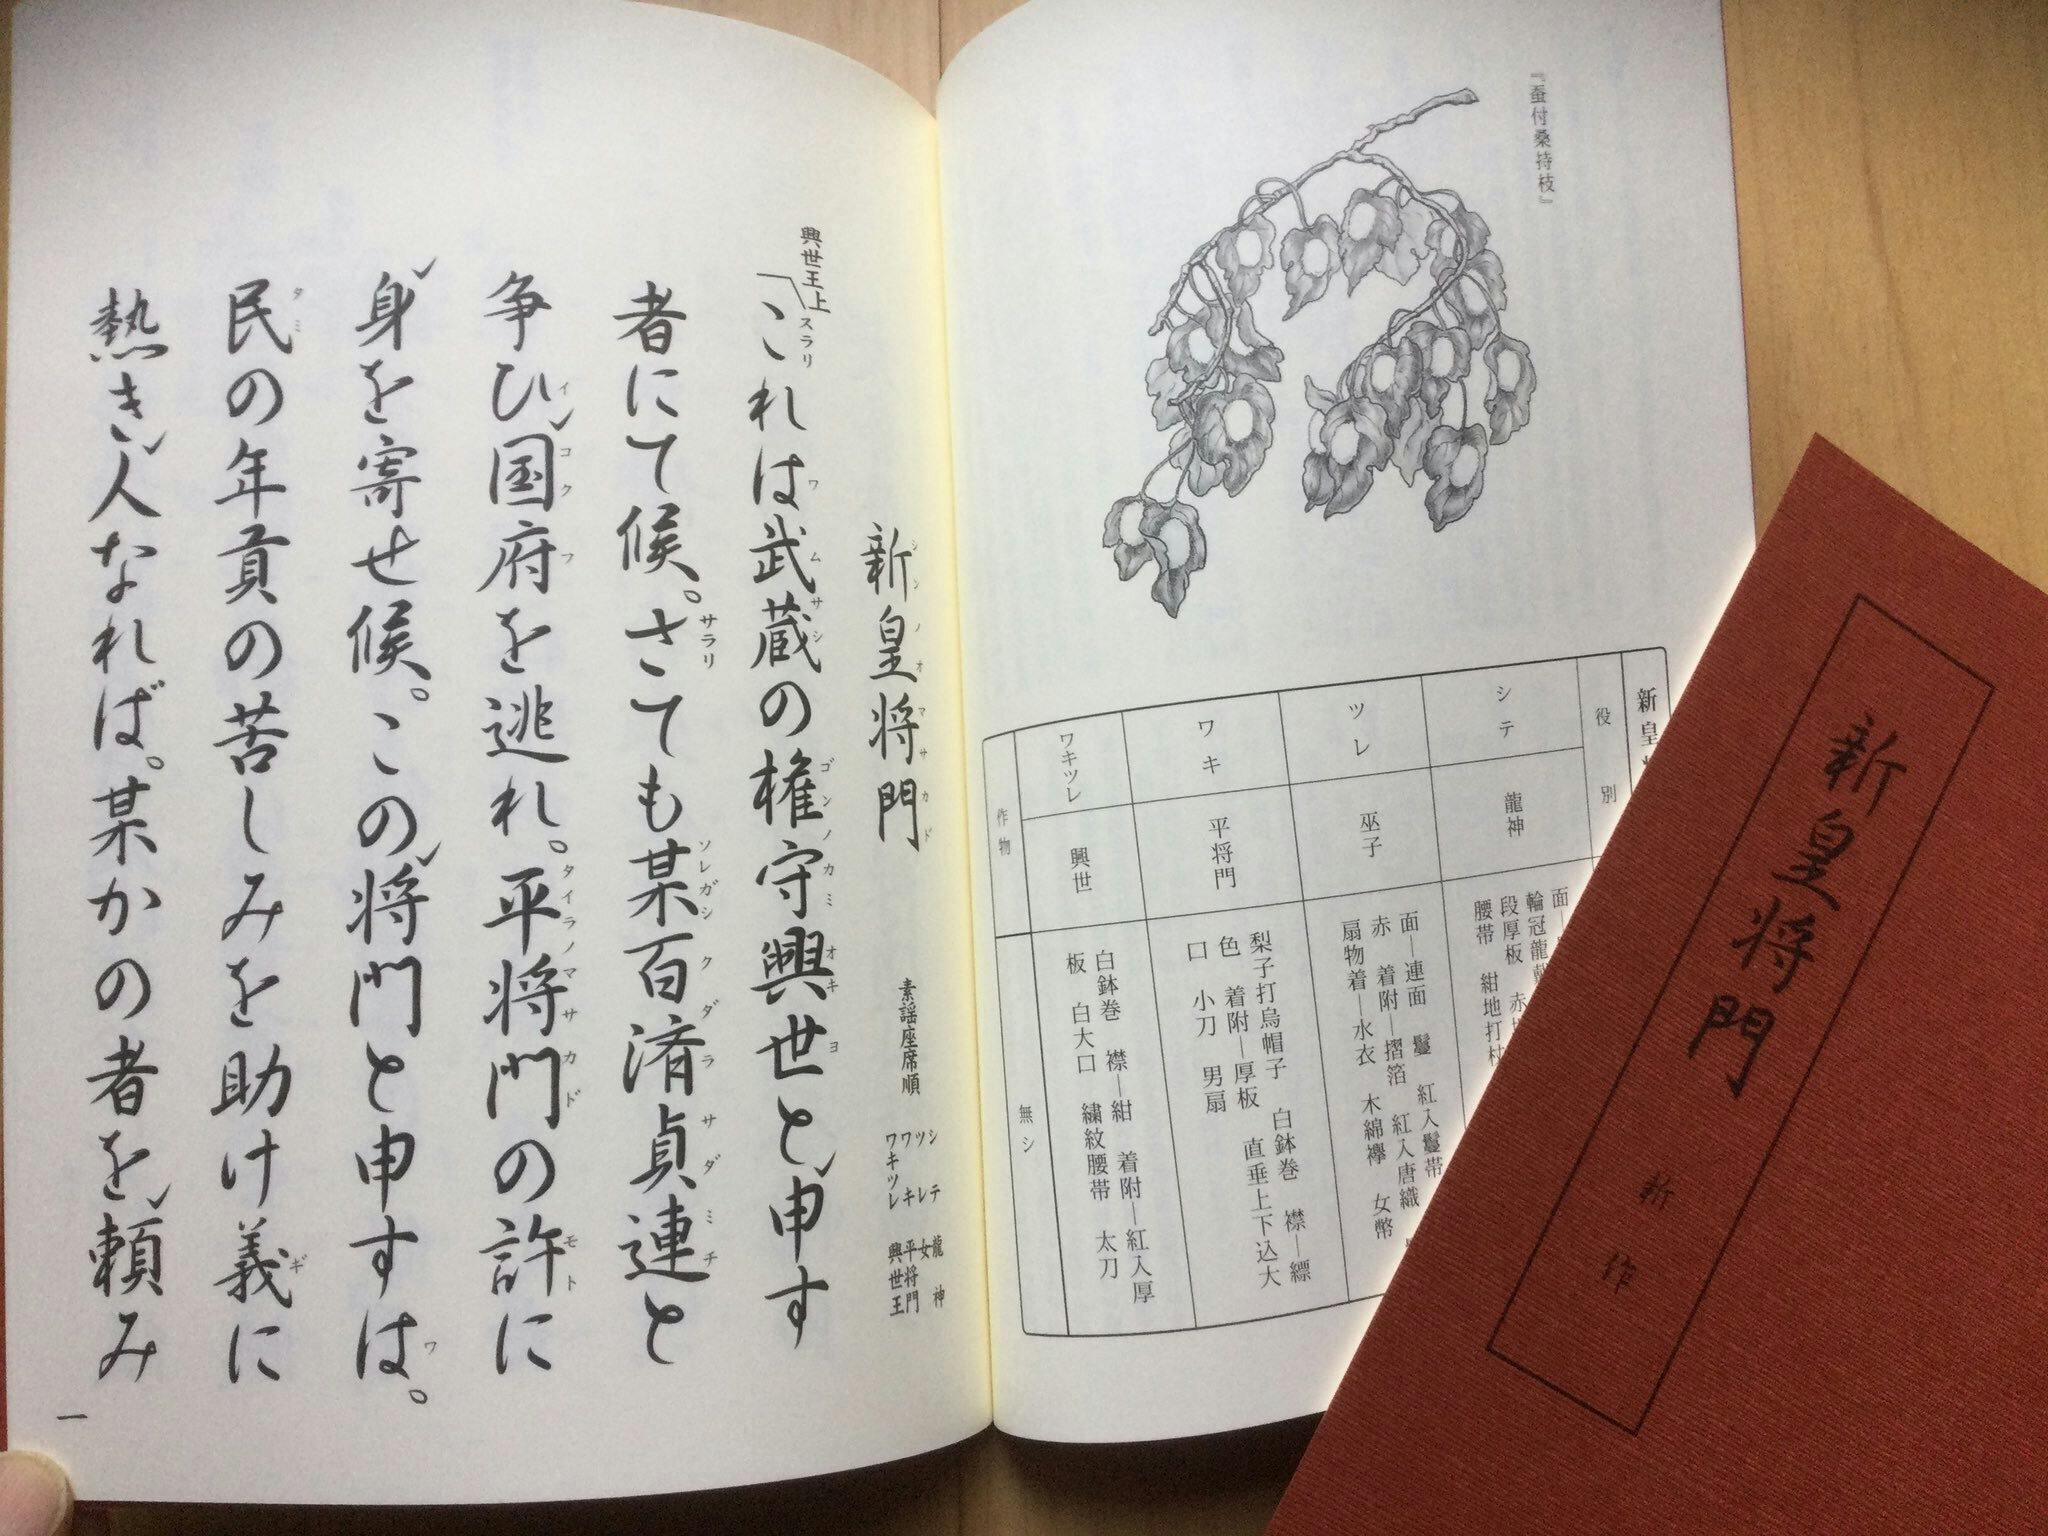 『蚕付桑持枝』
新皇
役別
シテ
龍神
面
輪冠龍
段厚板 赤
腰帯 紺地打杖
ツレ
巫子
面―連面 鬘 紅入鬘帯
赤 着附―摺箔 紅入唐織
扇物着―水衣 木綿襷 女幣
ワキ
平将門
梨子打烏帽子 白鉢巻 襟―縹
色 着附―厚板 直垂上下込大
口 小刀 男扇
ワキツレ
興世
白鉢巻 襟―紺 着附―紅入厚
板 白大口 繍紋腰帯 太刀
作物
無シ
新皇将門
シンノオマサカド
素謡座席順
シテ 龍神
ツレ 女
ワキ 平将門
ワキツレ 興世王
興世王上
スラリ
これは武蔵の権守興世と申す
ワ ムサシ ゴンノカミ オキヨ
者にて候。さても某百済貞連と
サラリ ソレガシ クダラ サダミチ
争ひ国府を逃れ。平将門の許に
イ コクフ タイラノマサカド モト
身を寄せ候。この将門と申すは。
ワ
民の年貢の苦しみを助け義に
タミ ギ
熱き人なれば。某かの者を頼み
一
新皇将門 新作